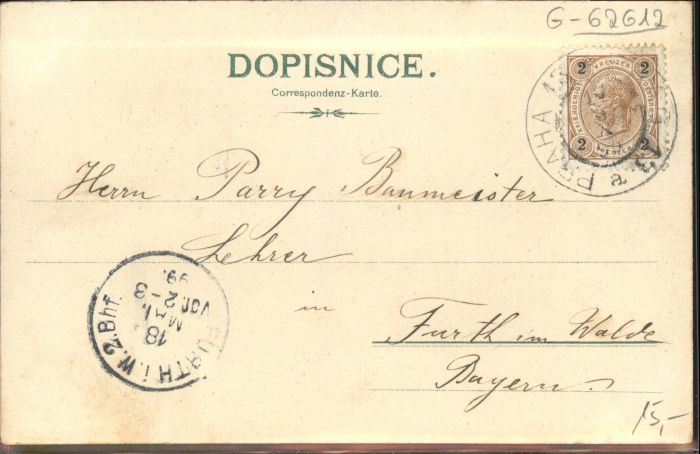 G-62612
DOPISNICE.
Correspondenz-Karte.
2 KREUZER 2
2 2
PRAHA
Herrn Parry Baumeister
Lehrer
in
Furth im Walde
Bayern.
FURTH i.W.2.Bhf.
18
MAI
Vor. 2-3
99.
15,-